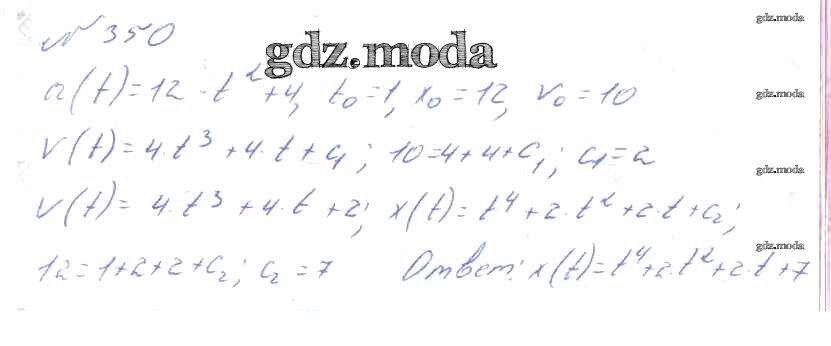 № 350
gdz.moda
gdz.moda
a(t)=12·t²+4, t₀=1, x₀=12, v₀=10
gdz.moda
v(t)=4·t³+4·t+c₁; 10=4+4+c₁; c₁=2
gdz.moda
v(t)=4·t³+4·t+2; x(t)=t⁴+2·t²+2·t+c₂;
gdz.moda
12=1+2+2+c₂; c₂=7 Ответ: x(t)=t⁴+2·t²+2·t+7